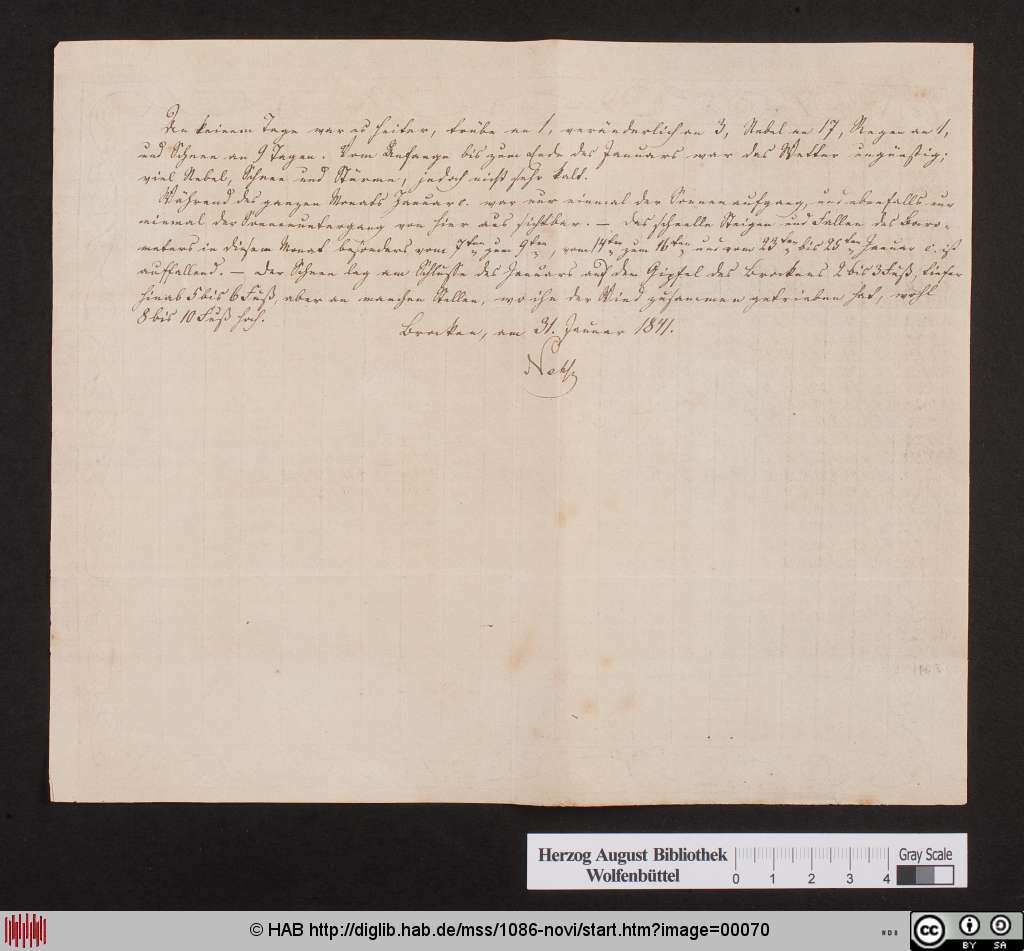 An keinem Tage war es heiter, trübe an 1, veränderlich an 3, Nebel an 17, Regen an 1,
und Schnee an 9 Tagen. Vom Anfange bis zum Ende des Januars war das Wetter ungünstig;
viel Nebel, Schnee und Stürme, jedoch nicht sehr kalt.
Während des ganzen Monats Januar c. war nur einmal der Sonnenaufgang, und ebenfalls nur
einmal der Sonnenuntergang von hier aus sichtbar. — Das schnelle Steigen und Fallen des Baro-
meters in diesem Monat besonders vom 7ten zum 9ten, vom 14ten zum 16ten und vom 23ten bis 25ten Januar c. ist
auffallend. — Der Schnee lag am Schlusse des Januars auf dem Gipfel des Brockens 2 bis 3 Fuß, tiefer
hinab 5 bis 6 Fuß, aber an manchen Stellen, wo ihn der Wind zusammen getrieben hat, wohl
8 bis 10 Fuß hoch.
Brocken, am 31. Januar 1841.
Nehse
Herzog August Bibliothek
Wolfenbüttel
0 1 2 3 4
Gray Scale
© HAB http://diglib.hab.de/mss/1086-novi/start.htm?image=00070
cc BY SA